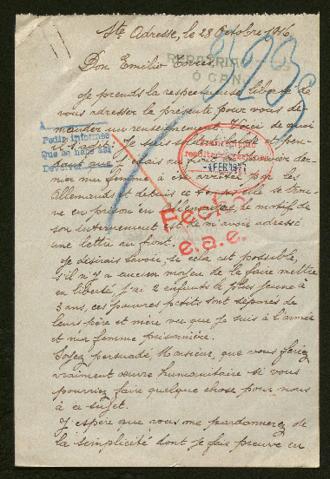 Ste Adresse, le 28 Octobre 1916
Don Emilio
Je prends la respectueuse liberté de
vous adresser la présente pour vous de-
mander un renseignement. Voici de quoi
il s'agit. Je suis soldat
que
Pedir informes
ma femme a été arrêtée par les
Allemands et depuis ce temps elle se trou-
ve en prison en le motif de
son internement est qu'elle m'avait adressé
une lettre au front.
Fecho
e.a.e.
Je désirais savoir, si cela est possible,
s'il n'y a aucun moyen de la faire mettre
en liberté j'ai 2 enfants le plus jeune à
3 ans, ces pauvres petits sont séparés de
leurs père et mère vu que je suis à l'armée
et ma femme prisonnière.
Soyez persuadé, Monsieur, que vous feriez
vraiment œuvre humanitaire si vous
pourriez faire quelque chose pour nous
à ce sujet.
J'espère que vous me pardonnerez de
la simplicité dont je fais preuve en